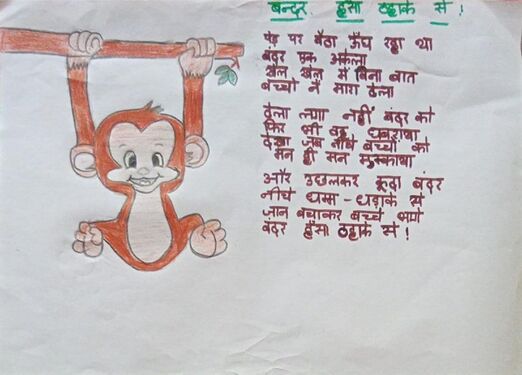 बन्दर हंसा ठहाके से !
पेड़ पर बैठा ऊँघ रहा था
बंदर एक अकेला
खेल खेल में बिना बात
बच्चो ने मारा ढेला
ढेला लगा नहीं बंदर को
फिर भी वह घबराया
देखा जब नीचे बच्चो को
मन ही मन मुस्काया
और उछलकर कूदा बंदर
नीचे धम्म - धड़ाके से
जान बचाकर बच्चे भागे
बंदर हँसा ठहाके से !